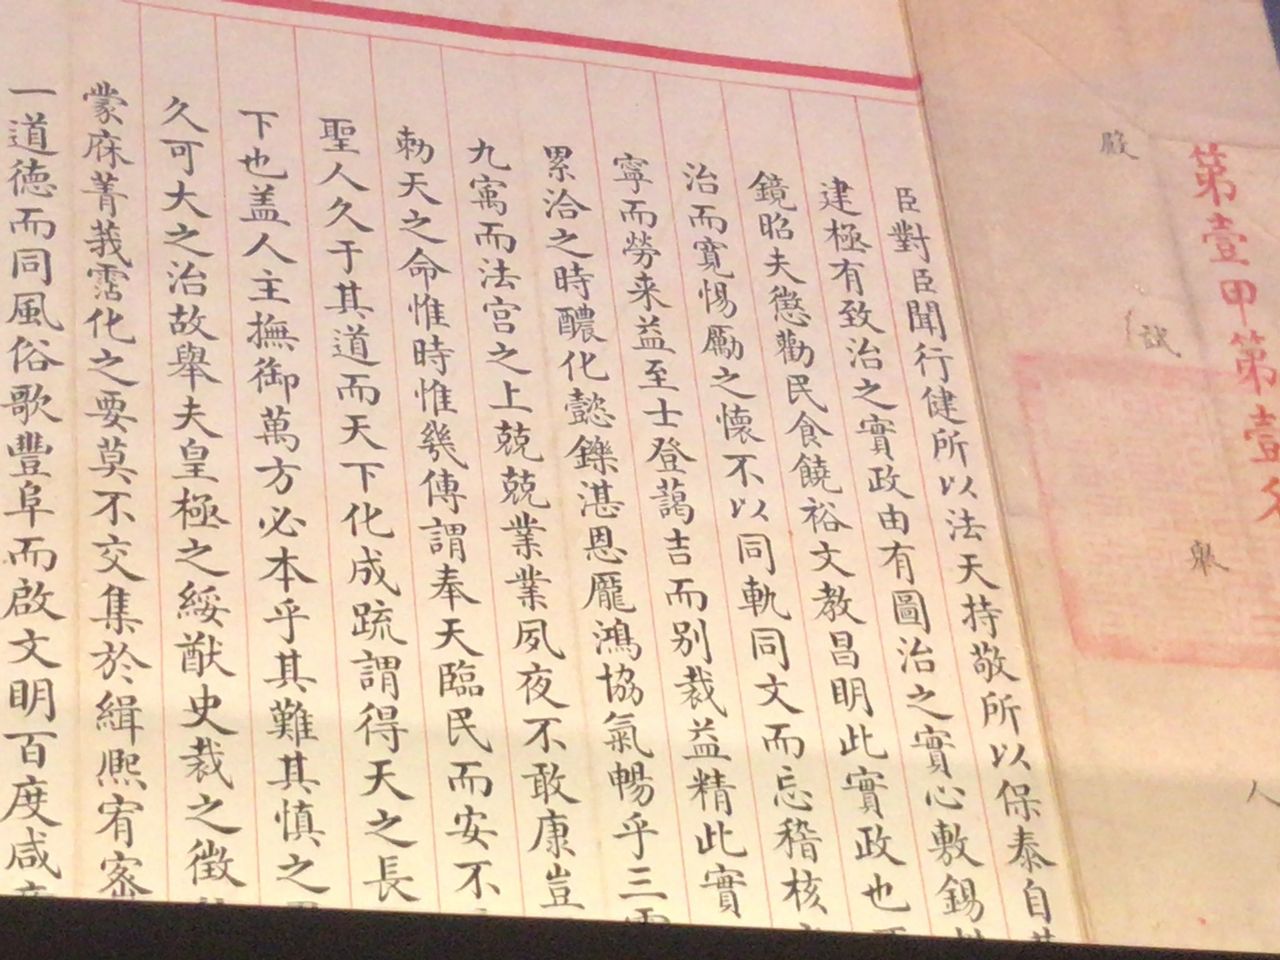 第壹甲第壹名
殿試舉人
臣對臣聞行健所以法天持敬所以保泰自
建極有致治之實政由有圖治之實心敷錫
鏡昭夫懲勸民食饒裕文教昌明此實政也
治而寬惕勵之懷不以同軌同文而忘稽核
寧而勞来益至士登藹吉而别裁益精此實
累洽之時醲化懿鑠湛恩龎鴻協氣暢乎三
九㝢而法宫之上兢兢業業夙夜不敢康豈
勑天之命惟時惟幾傳謂奉天臨民而安不
聖人久于其道而天下化成疏謂得天之長
下也盖人主撫御萬方必本乎其難其慎之
久可大之治故舉夫皇極之綏猷史裁之徴
蒙庥菁莪霑化之要莫不交集於緝熙宥密
一道德而同風俗歌豐阜而啟文明百度咸